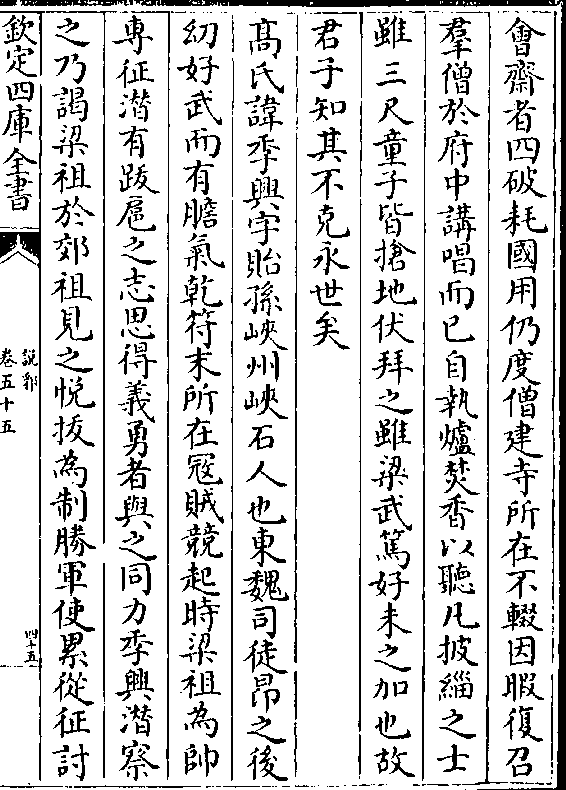 會齋者四破耗國用仍度僧建寺所在不輟因暇復召
羣僧於府中講唱而已自執爐焚香以聽凡披緇之士
雖三尺童子皆搶地伏拜之雖梁武篤好未之加也故
君子知其不克永世矣
髙氏諱季興字貽孫峽州峽石人也東魏司徒昂之後
幼好武而有膽氣乾符末所在冦賊競起時梁祖為帥
専征潜有跋扈之志思得義勇者與之同力季興潜察
之乃謁梁祖於郊祖見之悦拔為制勝軍使累從征討
欽定四庫全書
說郛
卷五十五
四十五